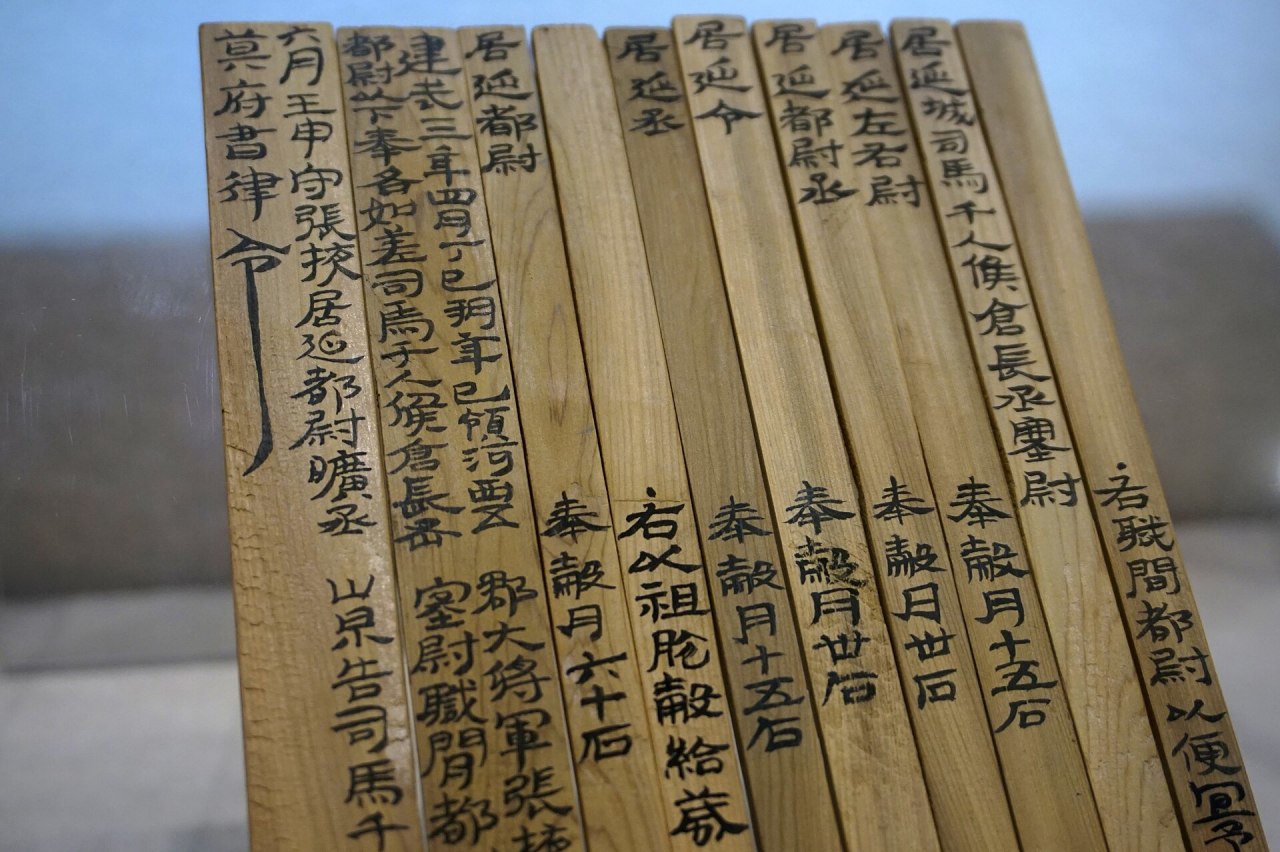 右職間都尉以便宜予
居延城司馬千人候倉長丞塞尉
居延左右尉 奉穀月十五石
居延都尉丞 奉穀月卅石
居延令 奉穀月卅石
居延丞 奉穀月十五石
右以祖脫穀給歲
居延都尉 奉穀月六十石
建武三年四月丁巳朔辛巳領河西五郡大將軍張掖
都尉以下奉各如差司馬千人候倉長丞塞尉職間都
六月壬申守張掖居延都尉曠丞崇告司馬千
莫府書律令